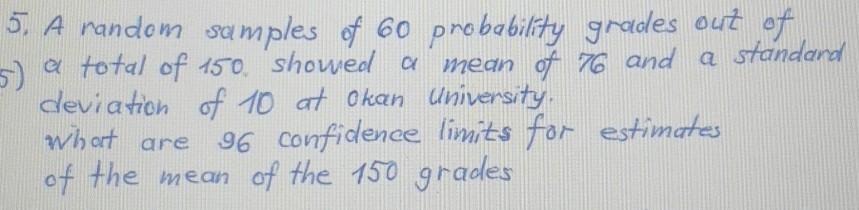 5. A random samples of 60 probability grades out of
5) a total of 150. showed a mean of 76 and a standard
deviation of 10 at Okan University.
What are 96 confidence limits for estimates
of the mean of the 150 grades